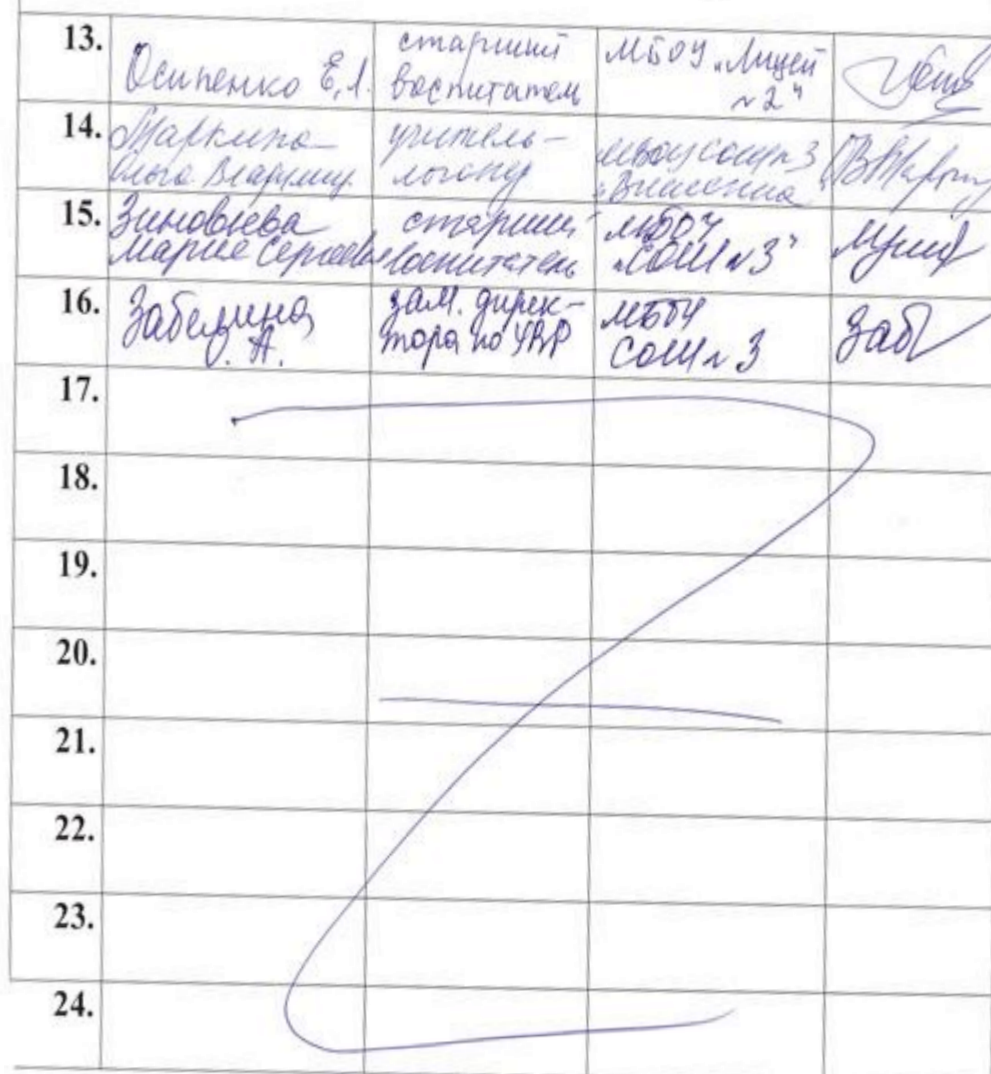 13.
Осипенко Е.Л.
старший
воспитатель
МБОУ "Лицей
№2"
14.
Маркина
Ольга
учитель-
логопед
МБОУ СОШ №3
15.
Зиновьева
Мария Сергеевна
старший
воспитатель
МБОУ
"СОШ №3"
16.
Забелина
О. А.
зам. дирек-
тора по УВР
МБОУ
СОШ №3
Заб
17.
18.
19.
20.
21.
22.
23.
24.